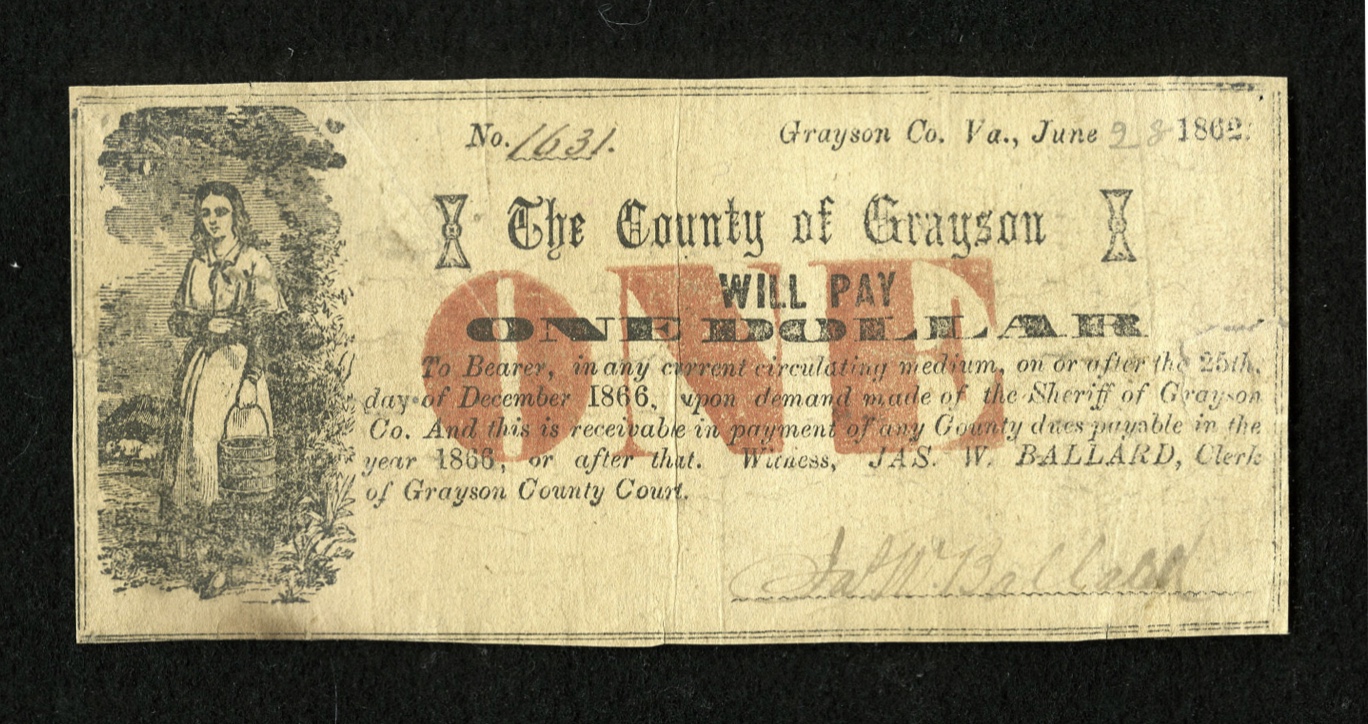 No. 1631.
Grayson Co. Va., June 28 1862.
The County of Grayson
WILL PAY
ONE DOLLAR
ONE
To Bearer, in any current circulating medium, on or after the 25th,
day of December 1866, upon demand made of the Sheriff of Grayson
Co. And this is receivable in payment of any County dues payable in the
year 1866, or after that. Witness, JAS. W. BALLARD, Clerk
of Grayson County Court.
Jas. W. Ballard